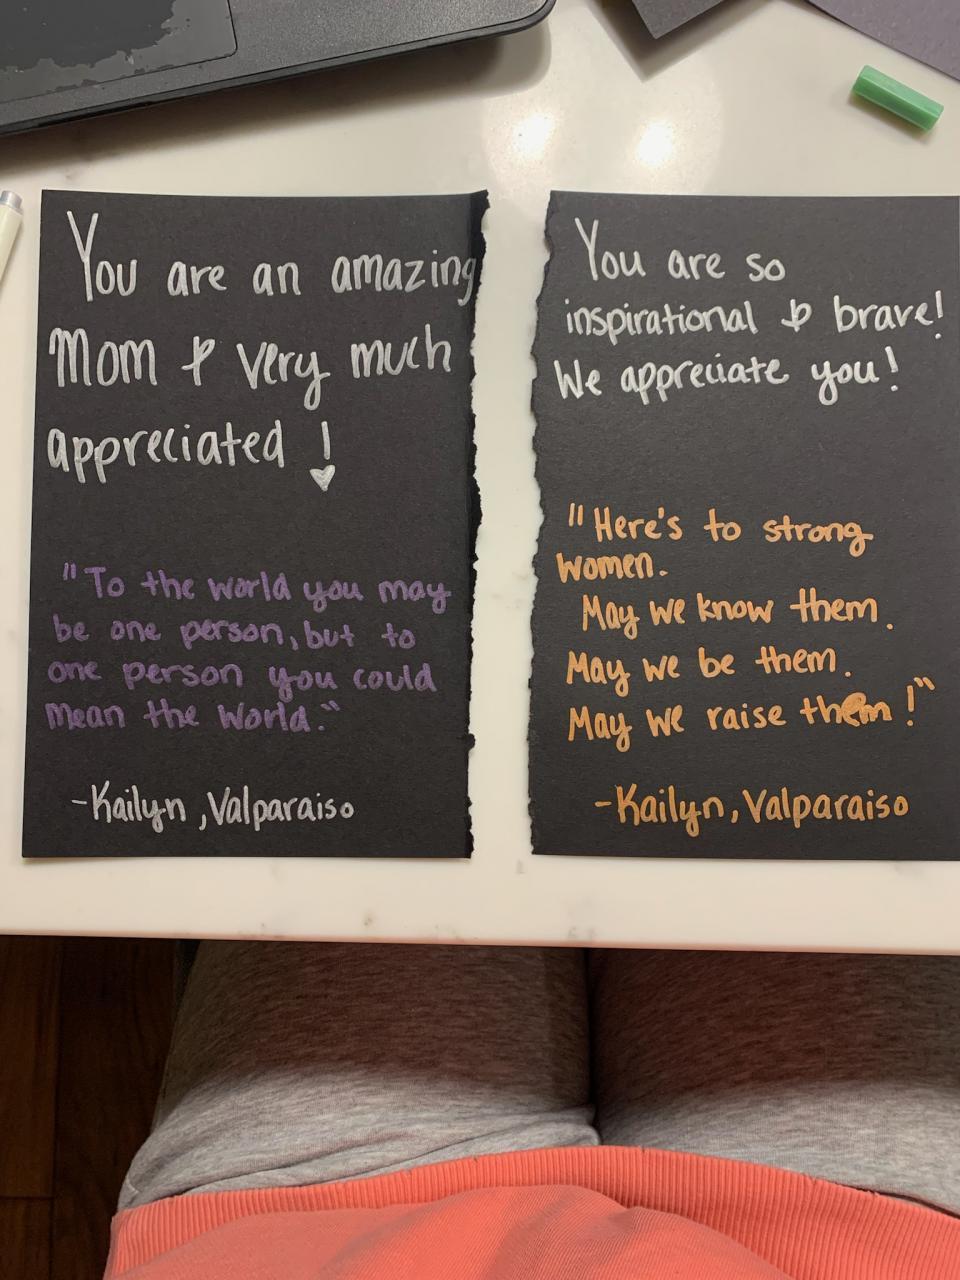 You are an amazing
Mom & very much
appreciated !
"To the world you may
be one person, but to
one person you could
mean the world."
-Kailyn, Valparaiso
You are so
inspirational & brave!
We appreciate you!
"Here's to strong
women.
May we know them.
May we be them.
May we raise them!"
-Kailyn, Valparaiso